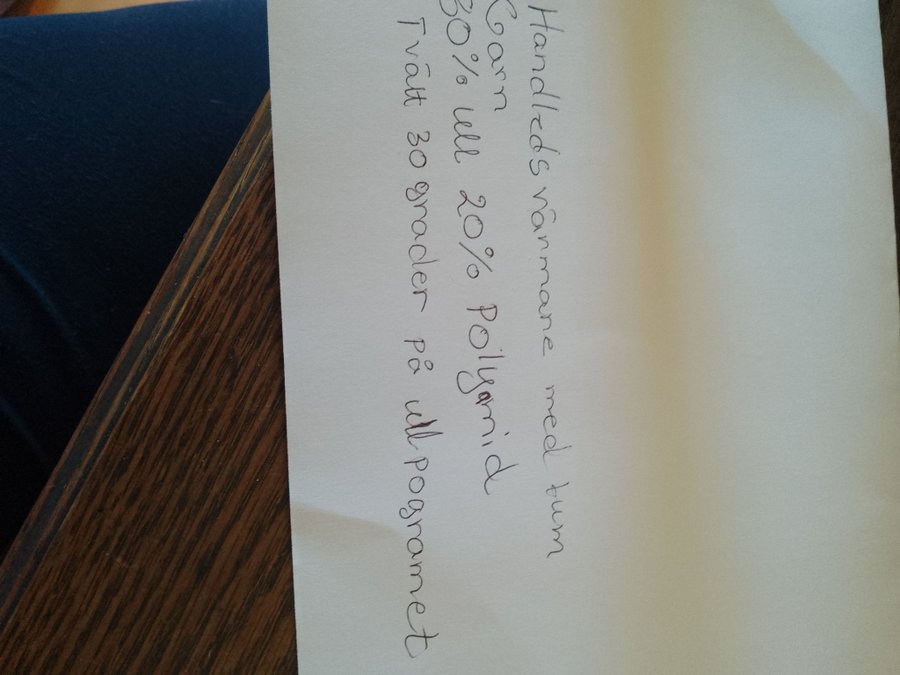 Handledsvärmare med tum
Garn
80% ull 20% Polyamid
Tvätt 30 grader på ullpogramet